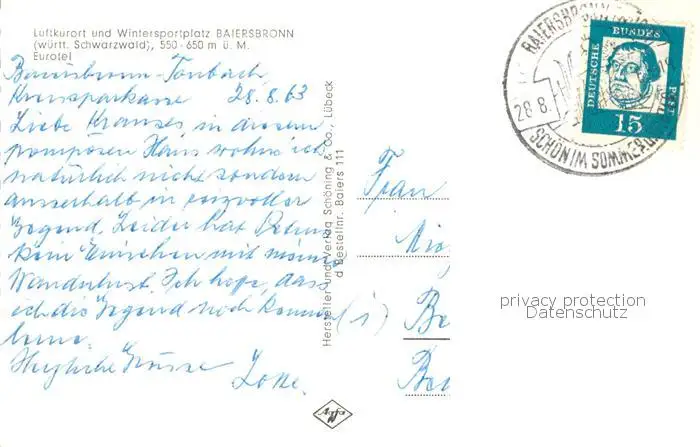 Luftkurort und Wintersportplatz BAIERSBRONN
(württ. Schwarzwald), 550-650 m ü. M.
Eurotel
Baiersbronn-Tonbach
Kreissparkasse 28.8.63
Liebe Krauses, in diesem
pompösen Haus wohne ich
natürlich nicht sondern
ausserhalb in reizvoller
Gegend. Leider hat Petrus
kein Einsehen mit meiner
Wanderlust. Ich hoffe, dass
ich die Gegend noch kennen
lerne.
Herzliche Grüsse
Hersteller und Verlag Schöning & Co., Lübeck
d Bestellnr. Baiers 111
Agfa
Frau
(1) Be
Be
BAIERSBRONN
28.8.
SCHÖN IM SOMMER
DEUTSCHE BUNDESPOST
15
privacy protection
Datenschutz